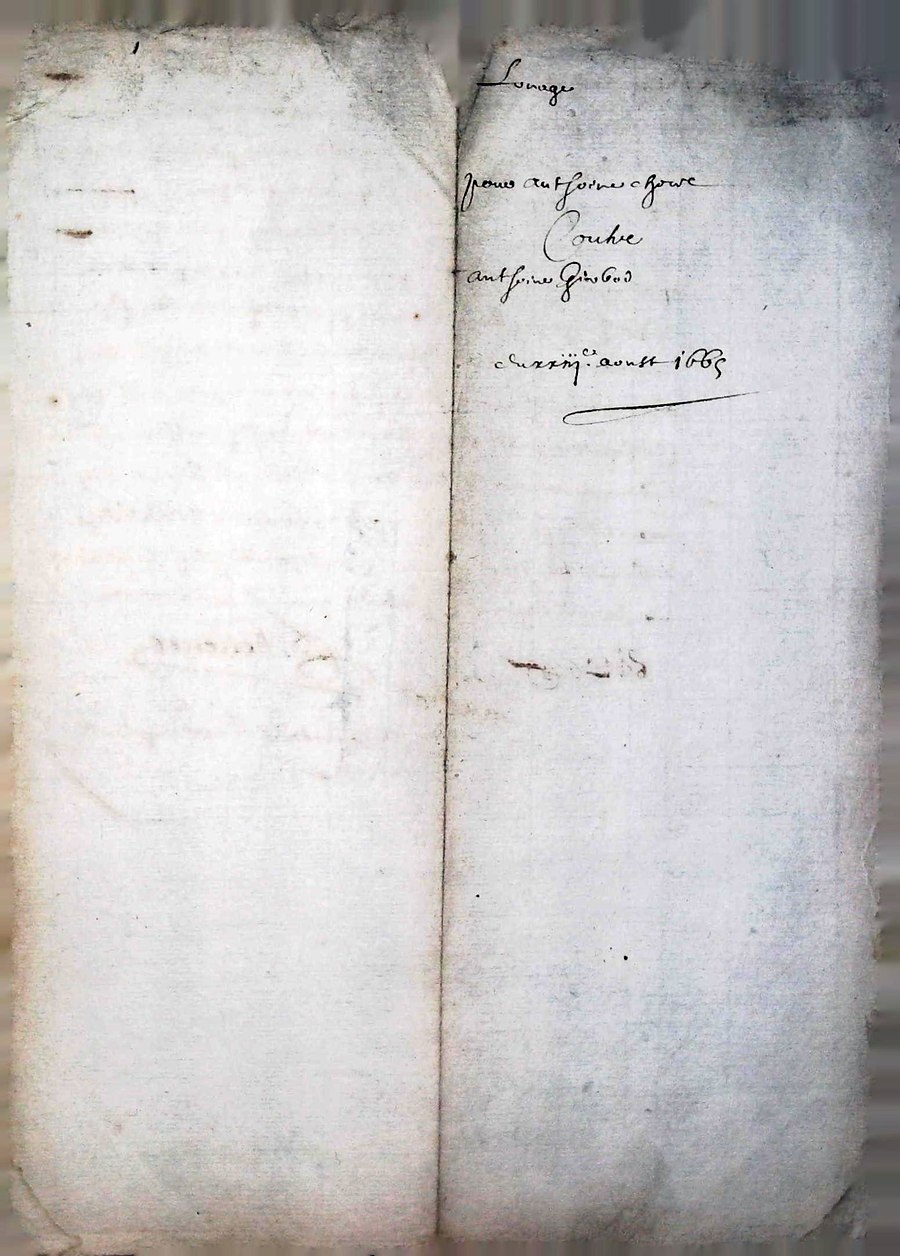 Louage
pour anthoine chove
Contre
anthoine Girbod
du xxiii.e aoust 1665